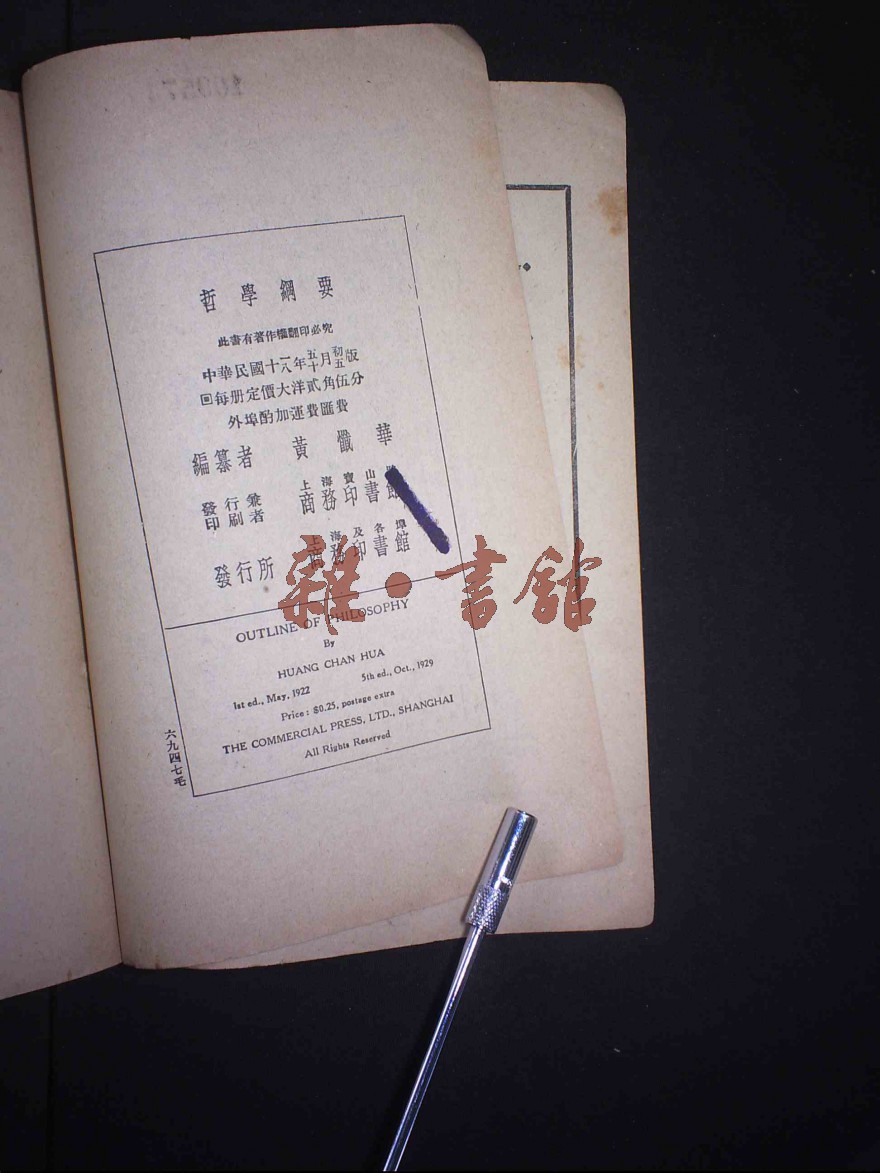 哲學綱要
此書有著作權翻印必究
中華民國十一年五月初版
八 十 五
回每册定價大洋貳角伍分
外埠酌加運費匯費
編纂者 黃懺華
發行兼印刷者 上海寶山 商務印書館
發行所 上海及各埠 商務印書館
OUTLINE OF PHILOSOPHY
By
HUANG CHAN HUA
1st ed., May, 1922 5th ed., Oct., 1929
Price: $0.25, postage extra
THE COMMERCIAL PRESS, LTD., SHANGHAI
All Rights Reserved
六九四七毛
雜·書館